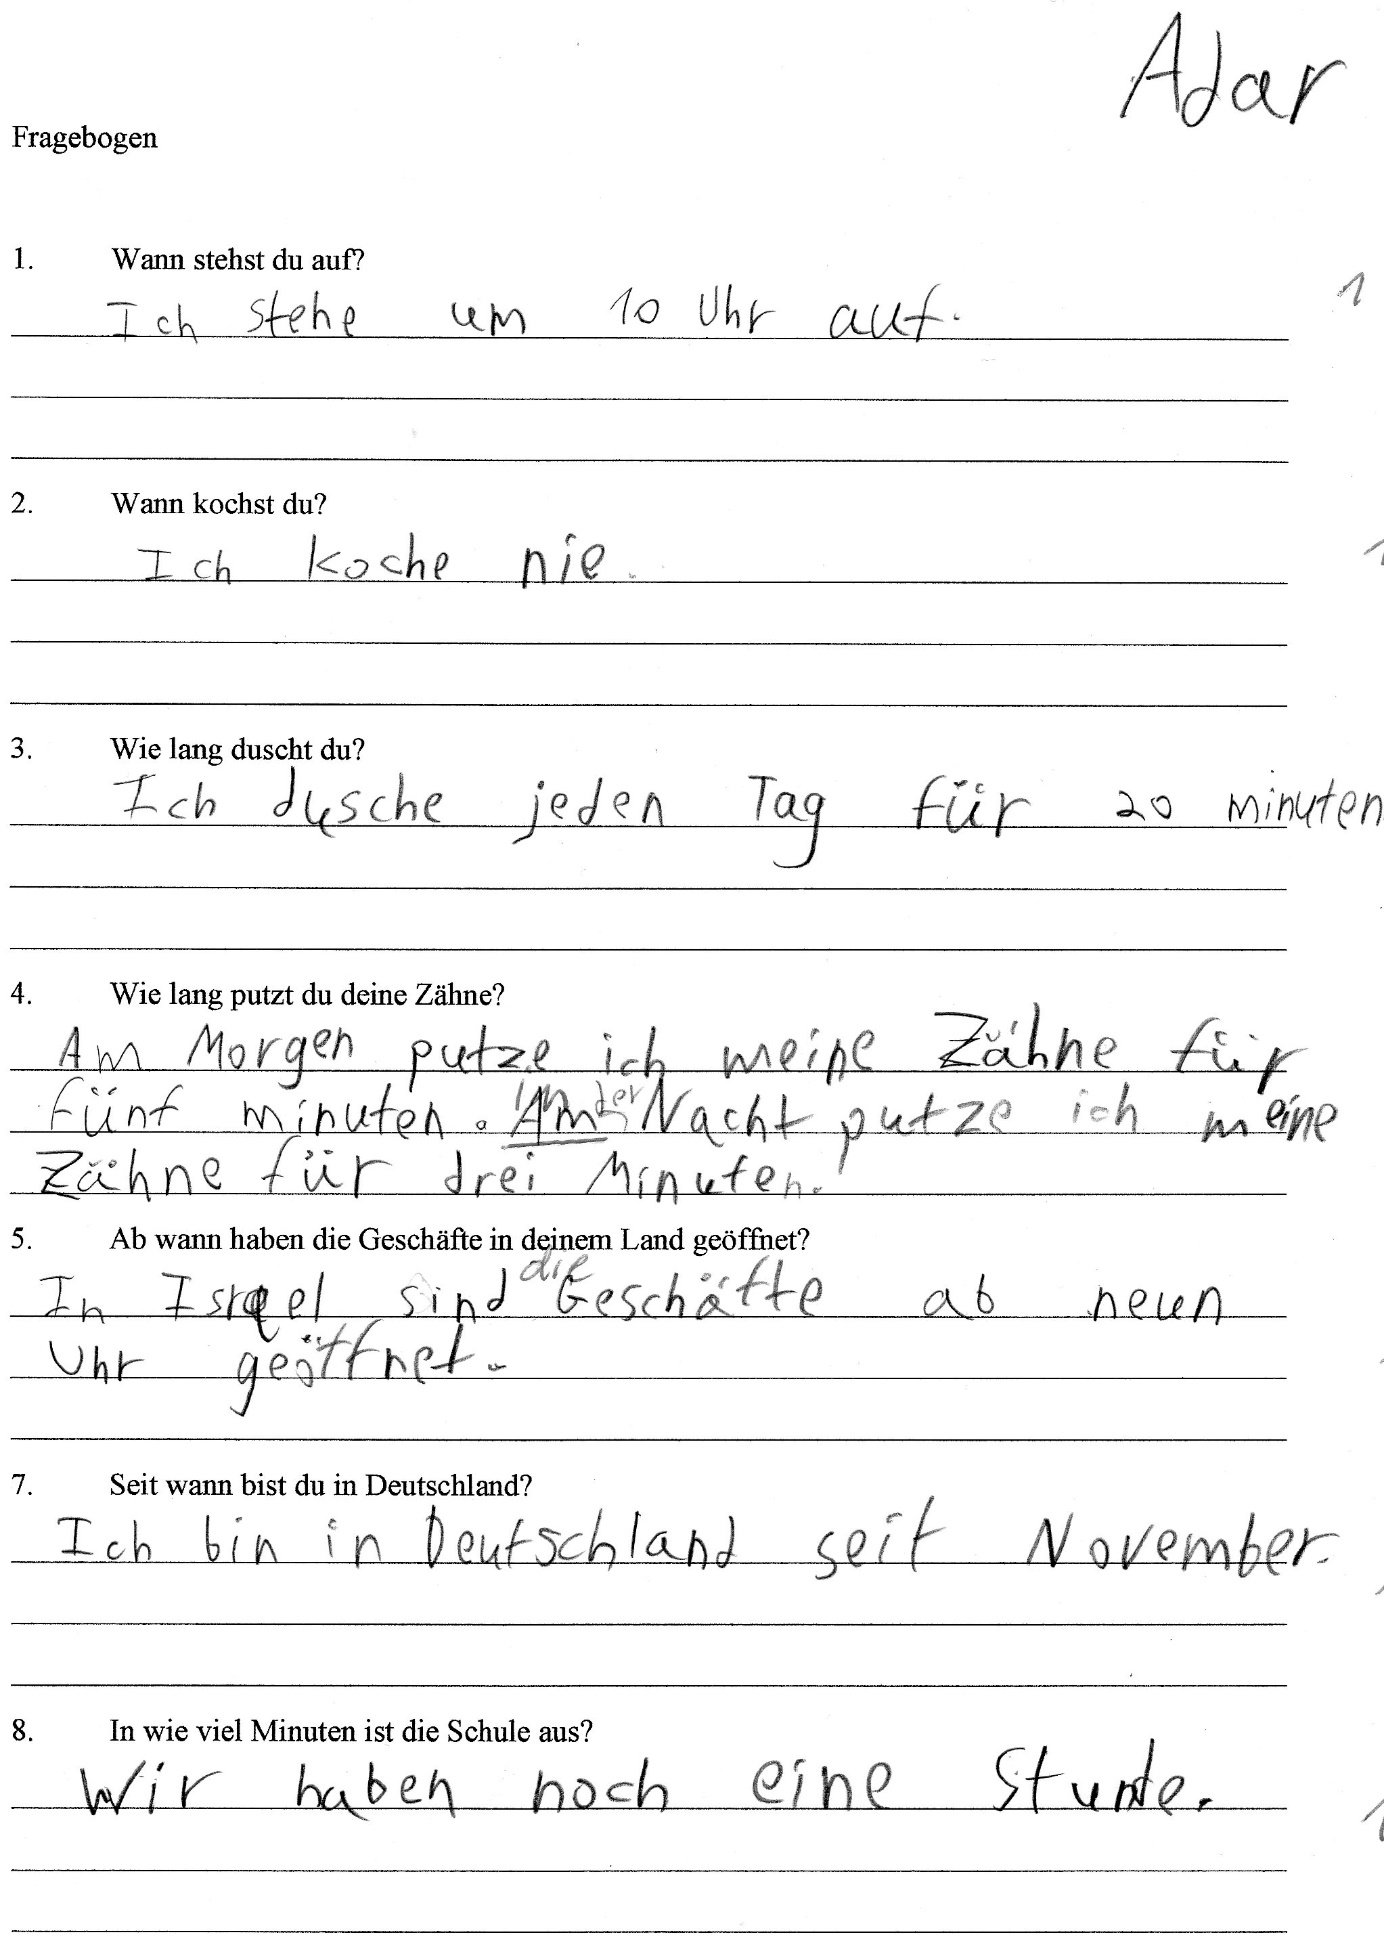 Adar
Fragebogen
1. Wann stehst du auf?
Ich stehe um 10 Uhr auf.
1
2. Wann kochst du?
Ich koche nie.
1
3. Wie lang duscht du?
Ich dusche jeden Tag für 20 minuten
4. Wie lang putzt du deine Zähne?
Am Morgen putze ich meine Zähne für
in der
fünf minuten. Am Nacht putze ich meine
Zähne für drei Minuten.
5. Ab wann haben die Geschäfte in deinem Land geöffnet?
die
In Israel sind Geschäfte ab neun
Uhr geöffnet.
7. Seit wann bist du in Deutschland?
Ich bin in Deutschland seit November.
8. In wie viel Minuten ist die Schule aus?
Wir haben noch eine Stunde.
1